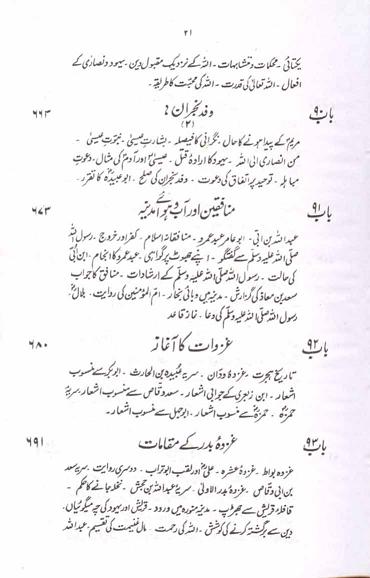 ۲۱
یکتائی۔ محکمات و متشابہات۔ اللہ کے نزدیک مقبول دین۔ یہود و نصاریٰ کے
افعال۔ اللہ تعالیٰ کی قدرت۔ اللہ کی محبت کا طریقہ۔
باب ۹۰ وفد نجران: ۶۶۳
(۲)
مریم کے پیدا ہونے کا حال۔ نگرانی کا فیصلہ۔ بشارتِ عیسیٰ۔ نبوتِ عیسیٰ۔
من انصاری الی اللہ۔ یہود کا ارادۂ قتل۔ عیسیٰ اور آدم کی مثال۔ دعوتِ
مباہلہ۔ توحید پر اتفاق کی دعوت۔ وفد نجران کی صلح۔ ابو عبیدہ کا تقرر۔
باب ۹۱ منافقین اور آب و ہوائے مدینہ ۶۷۳
عبداللہ بن ابی۔ ابو عامر عبد عمرو۔ منافقانہ اسلام۔ کفر اور خروج۔ رسول اللہ
صلی اللہ علیہ وسلم سے گفتگو۔ اپنے جھوٹ پر گواہی۔ عبد عمرو کا انجام۔ ابن ابی
کی حالت۔ رسول اللہ صلی اللہ علیہ وسلم کے ارشادات۔ منافق کا جواب
سعد بن معاذ کی گزارش۔ مدینہ میں وبائی بخار۔ ام المؤمنین کی روایت۔ بلال
رسول اللہ صلی اللہ علیہ وسلم کی دعا۔ نماز قاعد
باب ۹۲ غزوات کا آغاز ۶۸۰
تاریخ ہجرت۔ غزوۂ ودّان۔ سریہ عبیدہ بن الحارث۔ ابوبکر سے منسوب
اشعار۔ ابن زبعری کے جوابی اشعار۔ سعد وقاص سے منسوب اشعار۔ سریہ
حمزہ۔ حمزہ سے منسوب اشعار۔ ابوجہل سے منسوب اشعار۔
باب ۹۳ غزوۂ بدر کے مقامات ۶۹۱
غزوہ بواط۔ غزوۂ عشیرہ۔ علی اور لقب ابوتراب۔ دوسری روایت۔ سریہ سعد
بن ابی وقاص۔ غزوۂ بدر الاولیٰ۔ سریہ عبداللہ بن جحش۔ نخلہ جانے کا حکم۔
قافلۂ قریش سے جھڑپ۔ مدینہ منورہ میں ورود۔ قریش اور یہود کی چہ میگوئیاں۔
دین سے برگشتہ کرنے کی کوشش۔ اللہ کی رحمت۔ مال غنیمت کی تقسیم۔ عبداللہ